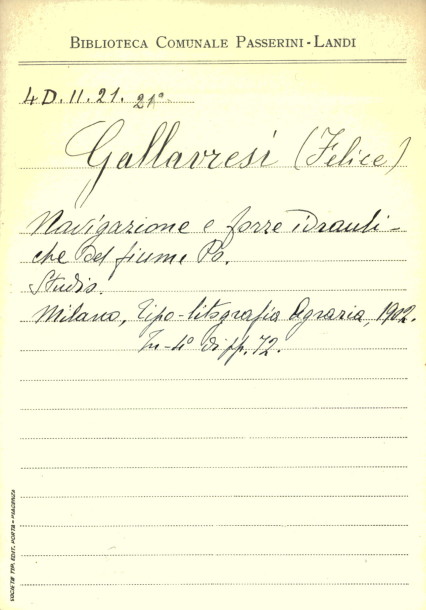 BIBLIOTECA COMUNALE PASSERINI-LANDI
4 D. II. 21. 21º
Gallavresi (Felice)
Navigazione e forze idrauli-
che del fiume Po.
Studio.
Milano, Tipo-litografia Agraria, 1902.
In-4º di pp. 72.
SOCIETÀ TIP. EDIT. PORTA - PIACENZA